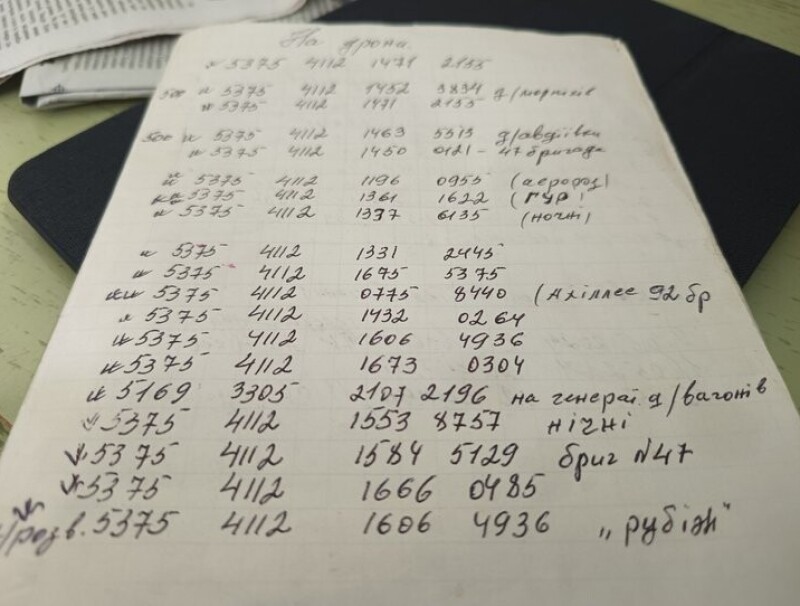 На дрони.
* 5375 4112 1471 2155
500 * 5375 4112 1452 3834 д/морпіхів
* 5375 4112 1471 2155
500 * 5375 4112 1463 5513 д/авдіївки
* 5375 4112 1450 0121 - 47 бригада
* 5375 4112 1196 0955 (аеророз)
** 5375 4112 1361 1622 (ГУР)
* 5375 4112 1337 6135 (ночні)
* 5375 4112 1331 2445
* 5375 4112 1675 5375
** 5375 4112 0775 8440 (Ахіллес 92 бр
* 5375 4112 1432 0264
* 5375 4112 1606 4936
* 5375 4112 1673 0304
* 5169 3305 2107 2196 на генерат. д/вагонів
* 5375 4112 1553 8757 нічні
* 5375 4112 1584 5129 бриг №47
* 5375 4112 1666 0485
* /розв. 5375 4112 1606 4936 „рубіж"